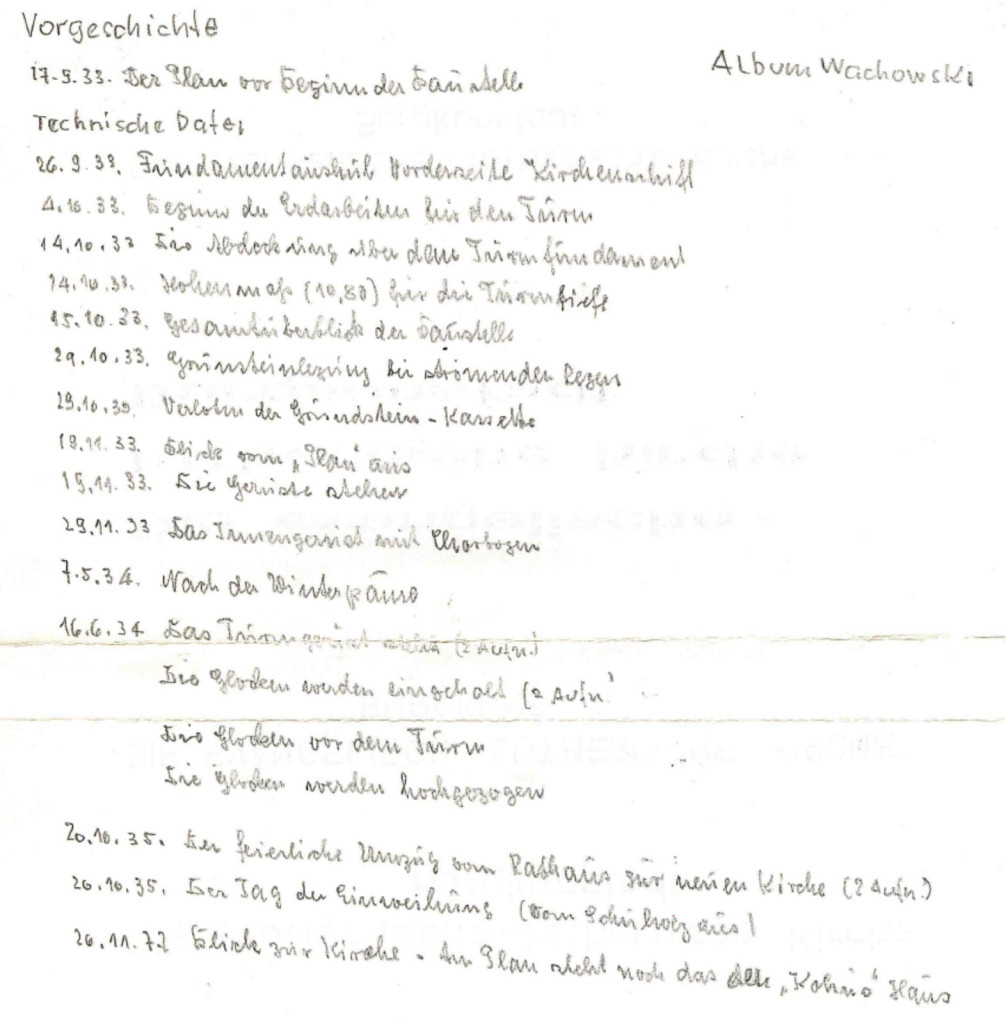 Vorgeschichte
Album Wachowski
17.9.33. Der Plan vor Beginn der Baustelle
Technische Daten
26.9.33. Fundamentaushub Vorderseite Kirchenschiff
4.10.33. Beginn der Erdarbeiten für den Turm
14.10.33 Die Abdeckung über dem Turmfundament
14.10.33. Höhenmaß (10,80) für die Turmtiefe
15.10.33. Gesamtüberblick der Baustelle
29.10.33. Grundsteinlegung bei strömenden Regen
29.10.33. Verlöten der Grundstein-Kassette
18.11.33. Blick vom "Plan" aus
19.11.33. Die Gerüste stehen
29.11.33 Das Innengerüst mit Chorbogen
7.5.34. Nach der Winterpause
16.6.34 Das Turmgerüst steht (2 Aufn)
Die Glocken werden eingeholt (2 Aufn
Die Glocken vor dem Turm
Die Glocken werden hochgezogen
20.10.35. Der feierliche Umzug vom Rathaus zur neuen Kirche (2 Aufn.)
20.10.35. Der Tag der Einweihung (vom Schulholz aus)
26.11.72 Blick zur Kirche - Am Plan steht noch das alte Haus